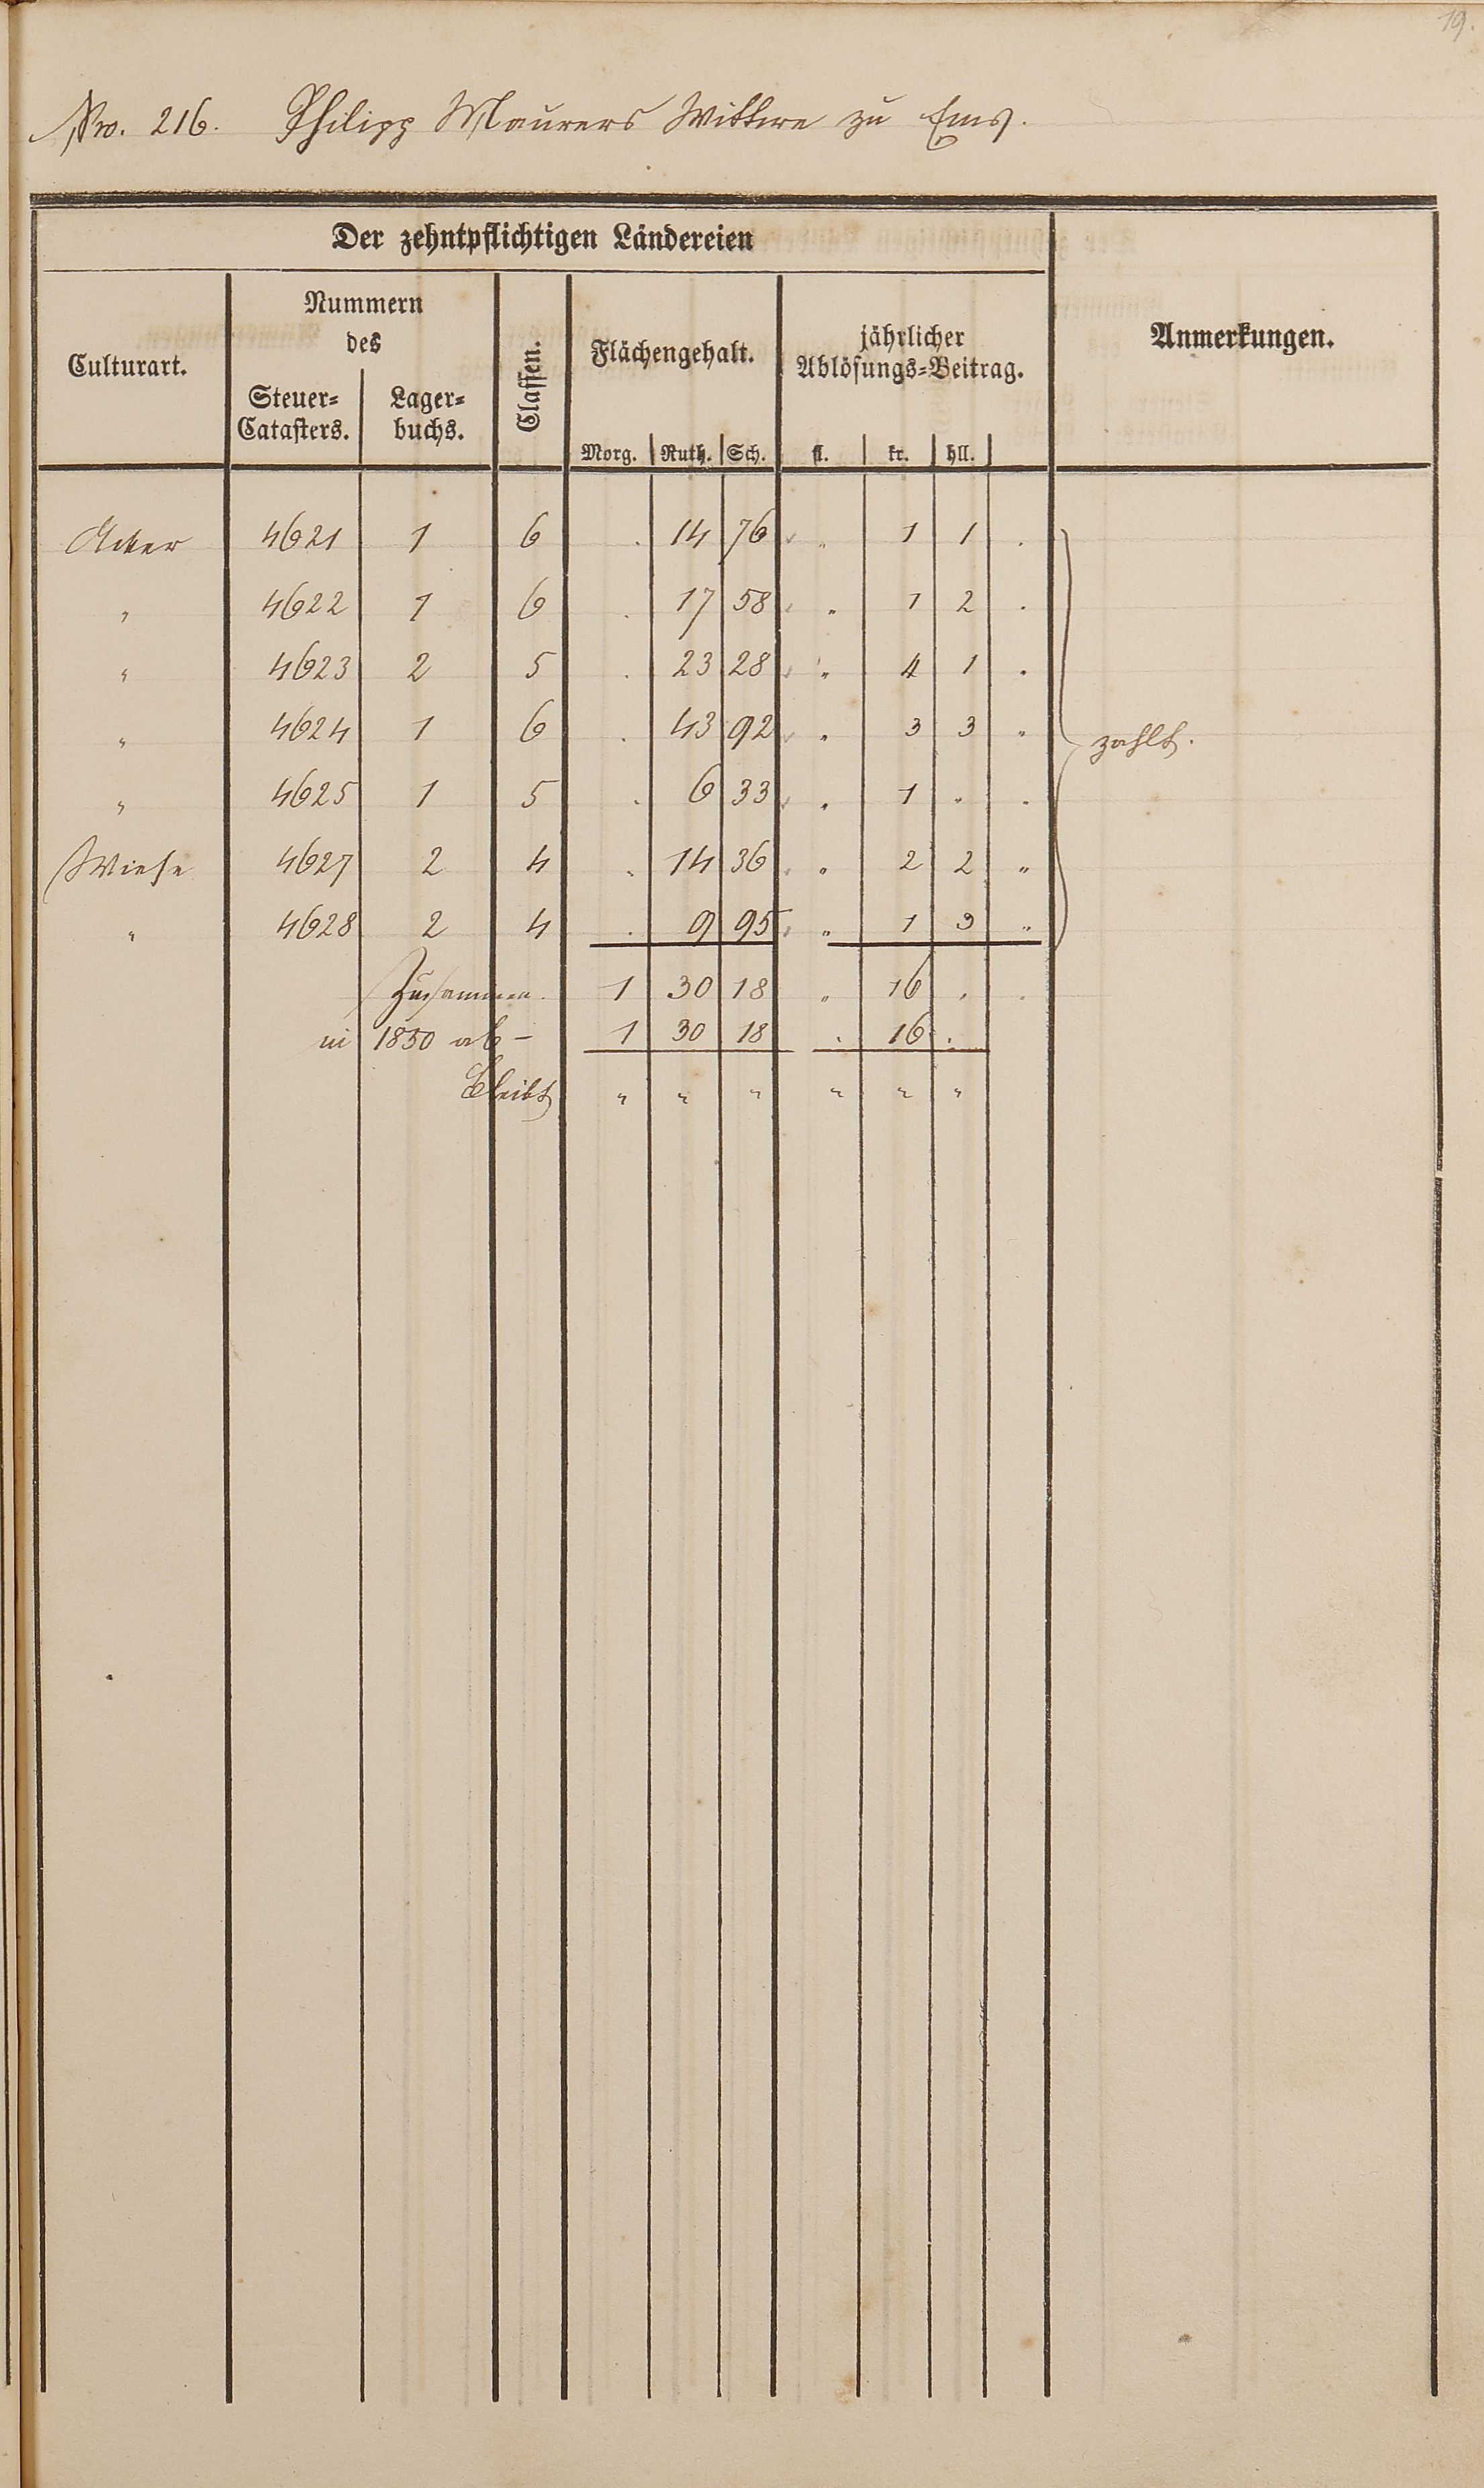 19.
Nro. 216. Philipp Maurers Wittwe zu Ems.
Der zehntpflichtigen Ländereien
Culturart. Nummern des Steuer=Catasters. Lager=buchs. Classen. Flächengehalt. Morg. Ruth. Sch. jährlicher Ablösungs=Beitrag. fl. kr. hll. Anmerkungen.
Acker 4621 1 6 . 14 76 " 1 1 .
" 4622 1 6 . 17 58 " 1 2 .
" 4623 2 5 . 23 28 " 4 1 .
" 4624 1 6 . 43 92 " 3 3 " zahlt.
" 4625 1 5 . 6 33 " 1 " .
Wiese 4627 2 4 . 14 36 " 2 2 "
" 4628 2 4 . 9 95 " 1 3 "
Zusammen. 1 30 18 " 16 . .
in 1850 ab - 1 30 18 . 16 .
Bleibt " " " " " "